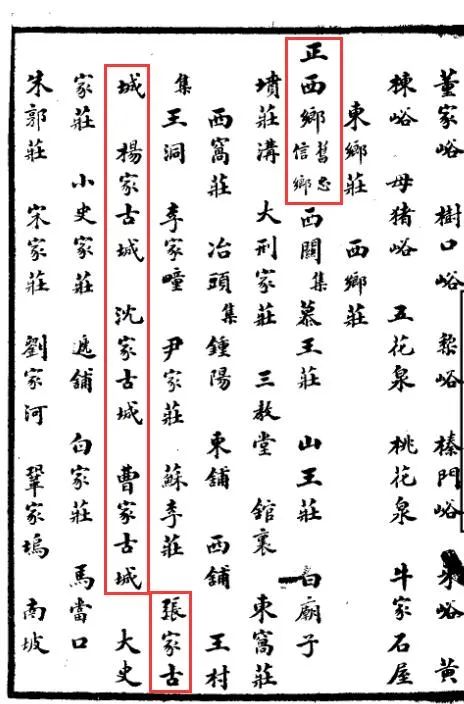 董家峪 樹口峪 黎峪 榛門峪 峪 黃
棟峪 母猪峪 五花泉 桃花泉 牛家石屋
東鄉莊 西鄉莊
正西鄉 舊忠信鄉 西關集 慕王莊 山王莊 白廟子
墳莊溝 大刑家莊 三教堂 館裏 東窩莊
西窩莊 冶頭集 鍾陽 東舖 西舖 王村
集 王洞 李家疃 尹家莊 蘇李莊 張家古
城 楊家古城 沈家古城 曹家古城 大史
家莊 小史家莊 遞舖 白家莊 馬當口
朱郭莊 宋家莊 劉家河 鞏家塢 南坡